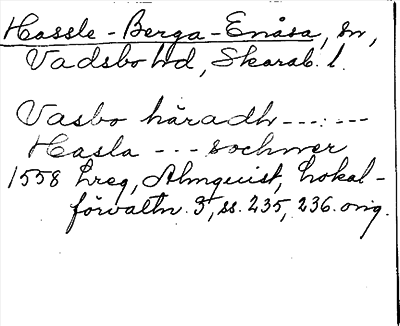 Hassle-Berga-Enåsa, sn,
Vadsbo hd, Skarab. l.
Vasbo häradh --- : ---
Hasla --- sochner
1558 Lreg, Almquist, Lokal-
förvaltn. 3, ss. 235, 236. orig.